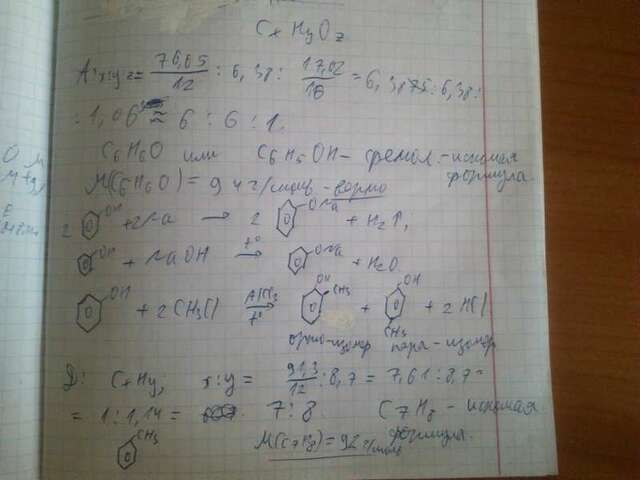 CxHyOz
A: x:y:z = 76,65/12 : 6,38 : 17,02/16 = 6,3875 : 6,38 :
: 1,06 ≈ 6 : 6 : 1.
C6H6O или C6H5OH – фенол. – искомая формула.
M(C6H6O) = 94 г/моль – верно
2 OH + 2Na → 2 ONa + H2↑,
OH + NaOH t° → ONa + H2O
OH + 2CH3Cl AlCl3 t° → OH CH3 + OH CH3 + 2HCl
орто-изомер пара-изомер
D: CxHy; x:y = 91,3/12 : 8,7 = 7,61 : 8,7 =
= 1 : 1,14 = 7 : 8. C7H8 – искомая формула.
CH3 M(C7H8) = 92 г/моль